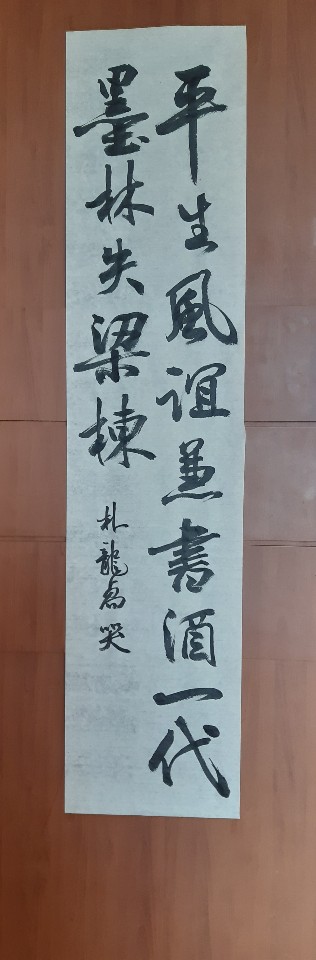 平生風誼兼書酒一代
墨林失梁棟
朴龍 哭